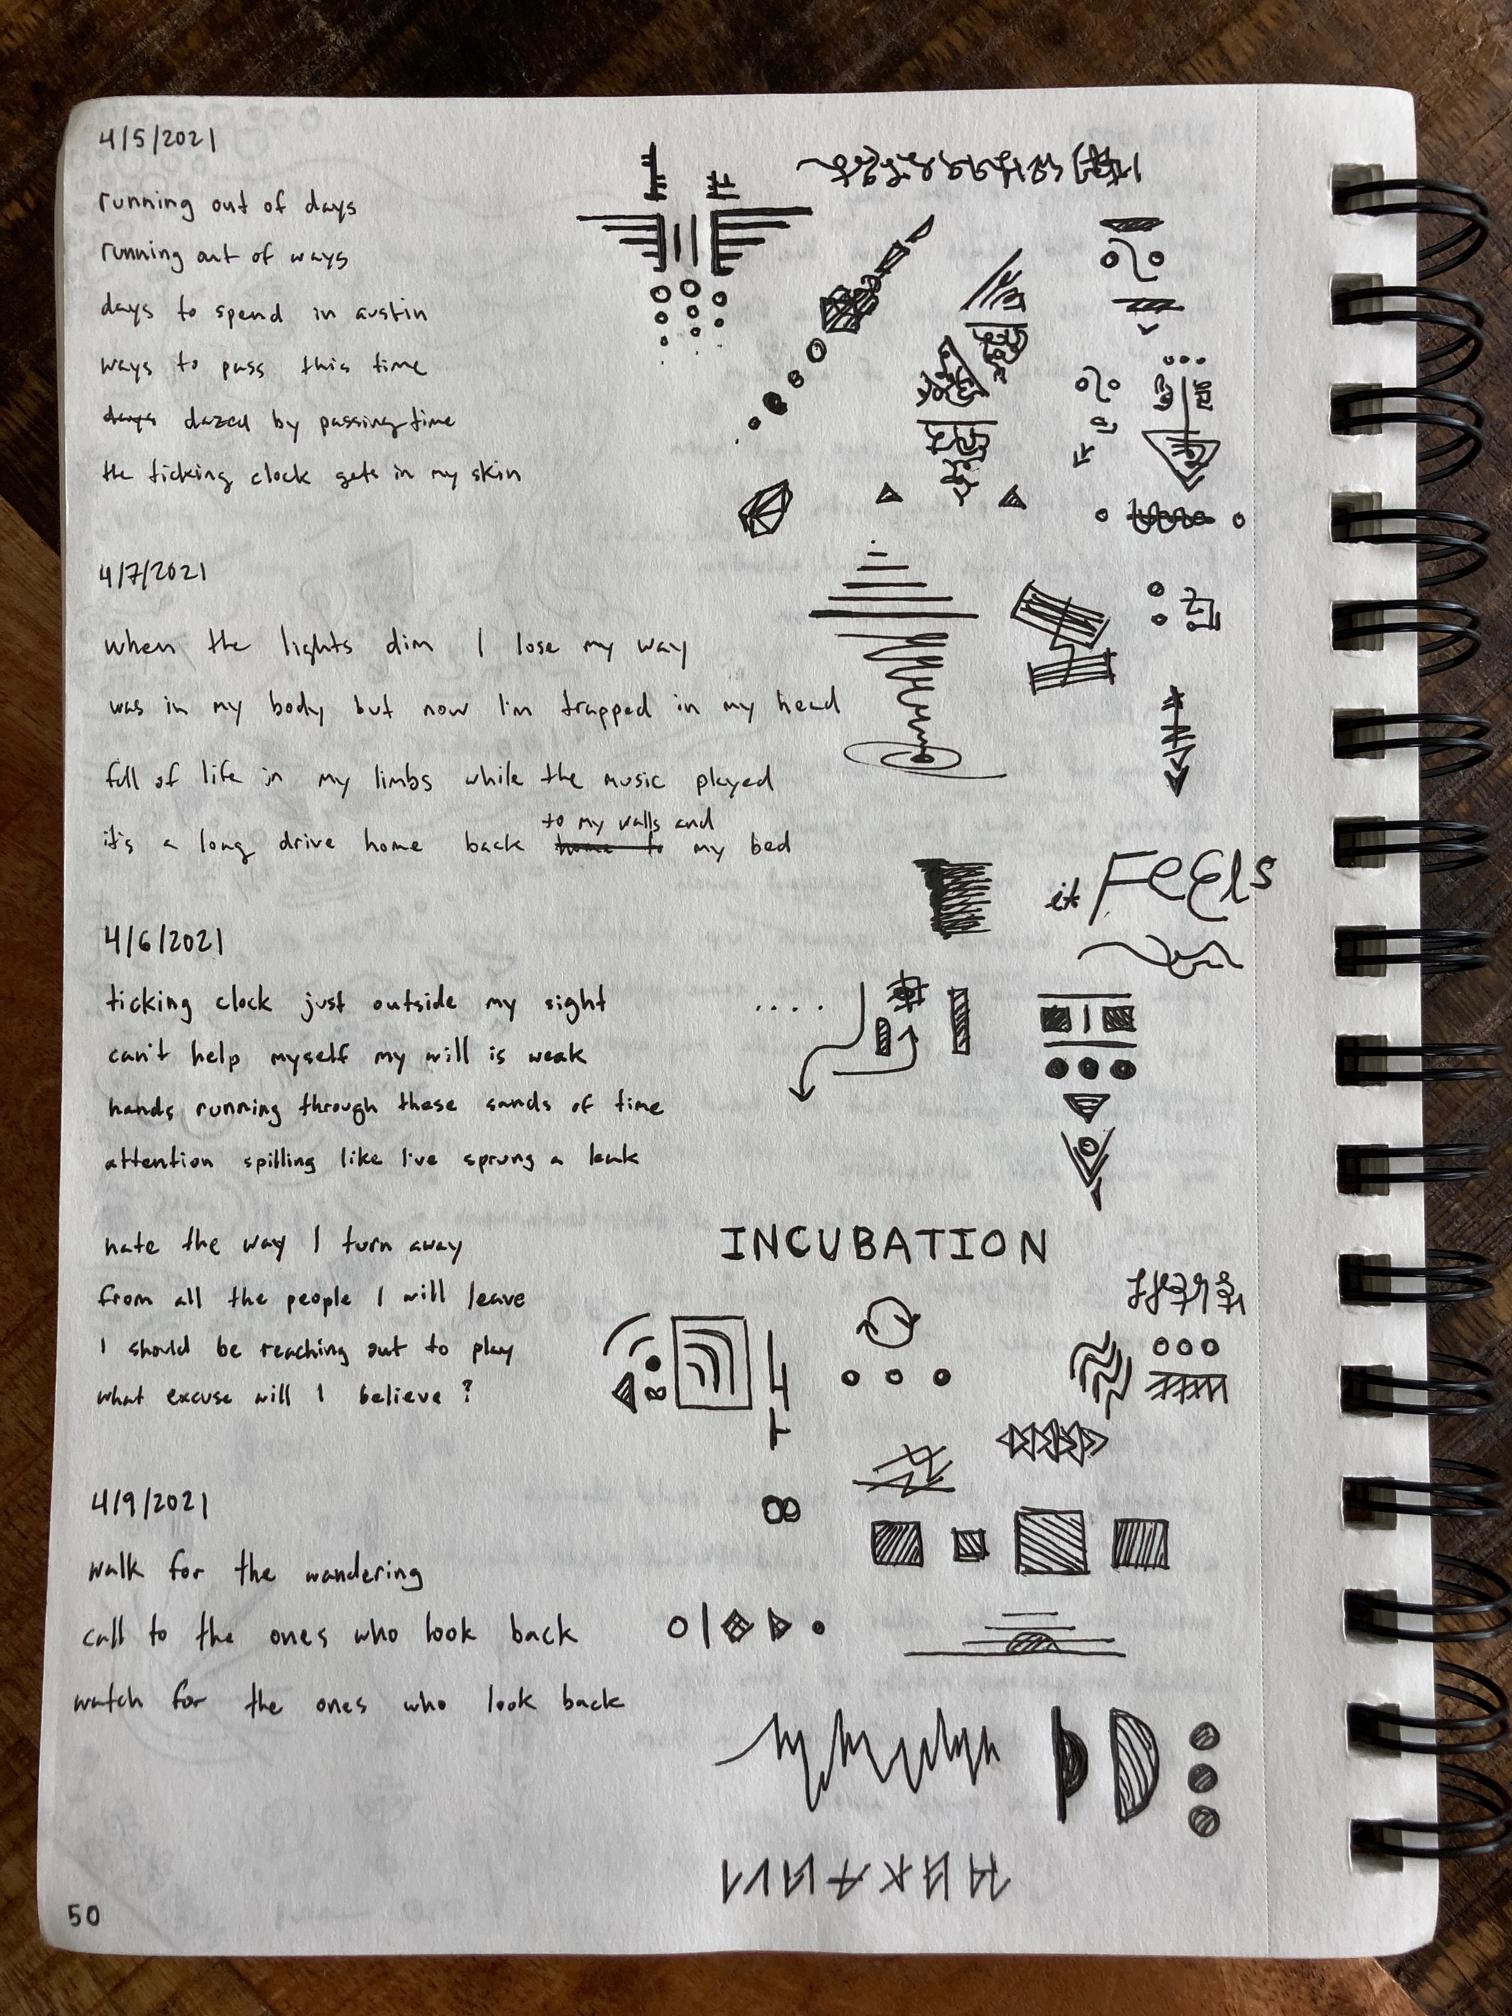 4/5/2021
running out of days
running out of ways
days to spend in austin
ways to pass this time
days dazed by passing time
the ticking clock gets in my skin
4/7/2021
when the lights dim I lose my way
was in my body but now I'm trapped in my head
full of life in my limbs while the music played
to my walls and
it's a long drive home back home to my bed
it FEELS
4/6/2021
ticking clock just outside my sight
can't help myself my will is weak
hands running through these sands of time
attention spilling like I've sprung a leak
hate the way I turn away
from all the people I will leave
I should be reaching out to play
what excuse will I believe?
INCUBATION
4/9/2021
walk for the wandering
call to the ones who look back
watch for the ones who look back
50